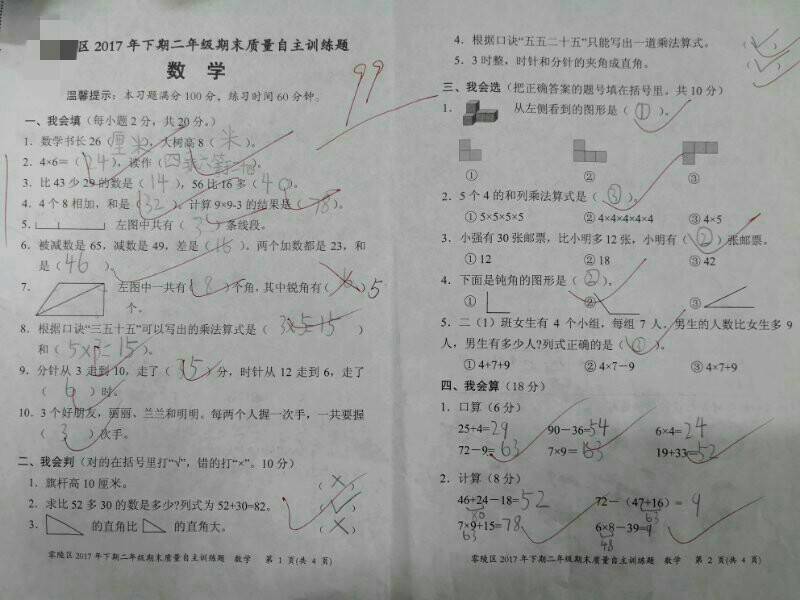 区 2017 年下期二年级期末质量自主训练题
数 学
99
温馨提示：本习题满分 100 分，练习时间 60 分钟。
一、我会填（每小题 2 分，共 20 分。）
1. 数学书长 26（厘米），大树高 8（米）。
2. 4×6＝（24），读作（四乘六等于）。
3. 比 43 少 29 的数是（14），56 比 16 多（40）。
4. 4 个 8 相加，和是（32）。计算 9×9-3 的结果是（78）。
5. 左图中共有（3）条线段。
6. 被减数是 65，减数是 49，差是（16）。两个加数都是 23，和
是（46）。
7. 左图中一共有（8）个角，其中锐角有（ ）5
个。
8. 根据口诀“三五十五”可以写出的乘法算式是（3×5=15）
和（5×3=15）。
9. 分针从 3 走到 10，走了（35）分，时针从 12 走到 6，走了
（6）时。
10. 3 个好朋友，丽丽、兰兰和明明。每两个人握一次手，一共要握
（3）次手。
二、我会判（对的在括号里打“√”，错的打“×”。10 分）
1. 旗杆高 10 厘米。（×）
2. 求比 52 多 30 的数是多少?列式为 52+30=82。（√）
3. 的直角比 的直角大。（×）
零陵区 2017 年下期二年级期末质量自主训练题 数学 第 1 页(共 4 页)
4. 根据口诀“五五二十五”只能写出一道乘法算式。（√）
5. 3 时整，时针和分针的夹角成直角。（√）
三、我会选（把正确答案的题号填在括号里。共 10 分）
1. 从左侧看到的图形是（①）。
① ② ③
2. 5 个 4 的和列乘法算式是（③）。
① 5×5×5×5 ② 4×4×4×4×4 ③ 4×5
3. 小强有 30 张邮票，比小明多 12 张，小明有（②）张邮票。
① 12 ② 18 ③ 42
4. 下面是钝角的图形是（②）。
① ② ③
5. 二（1）班女生有 4 个小组，每组 7 人，男生的人数比女生多 9
人，男生有多少人?列式正确的是（③）。
① 4+7+9 ② 4×7－9 ③ 4×7+9
四、我会算（18 分）
1. 口算（6 分）
25+4=29 90－36=54 6×4=24
72－9=63 7×9=63 19+33=52
2. 计算（8 分）
46+24－18=52 72－（47+16）=9
70 63
7×9+15=78 6×8－39=9
63 48
零陵区 2017 年下期二年级期末质量自主训练题 数学 第 2 页(共 4 页)